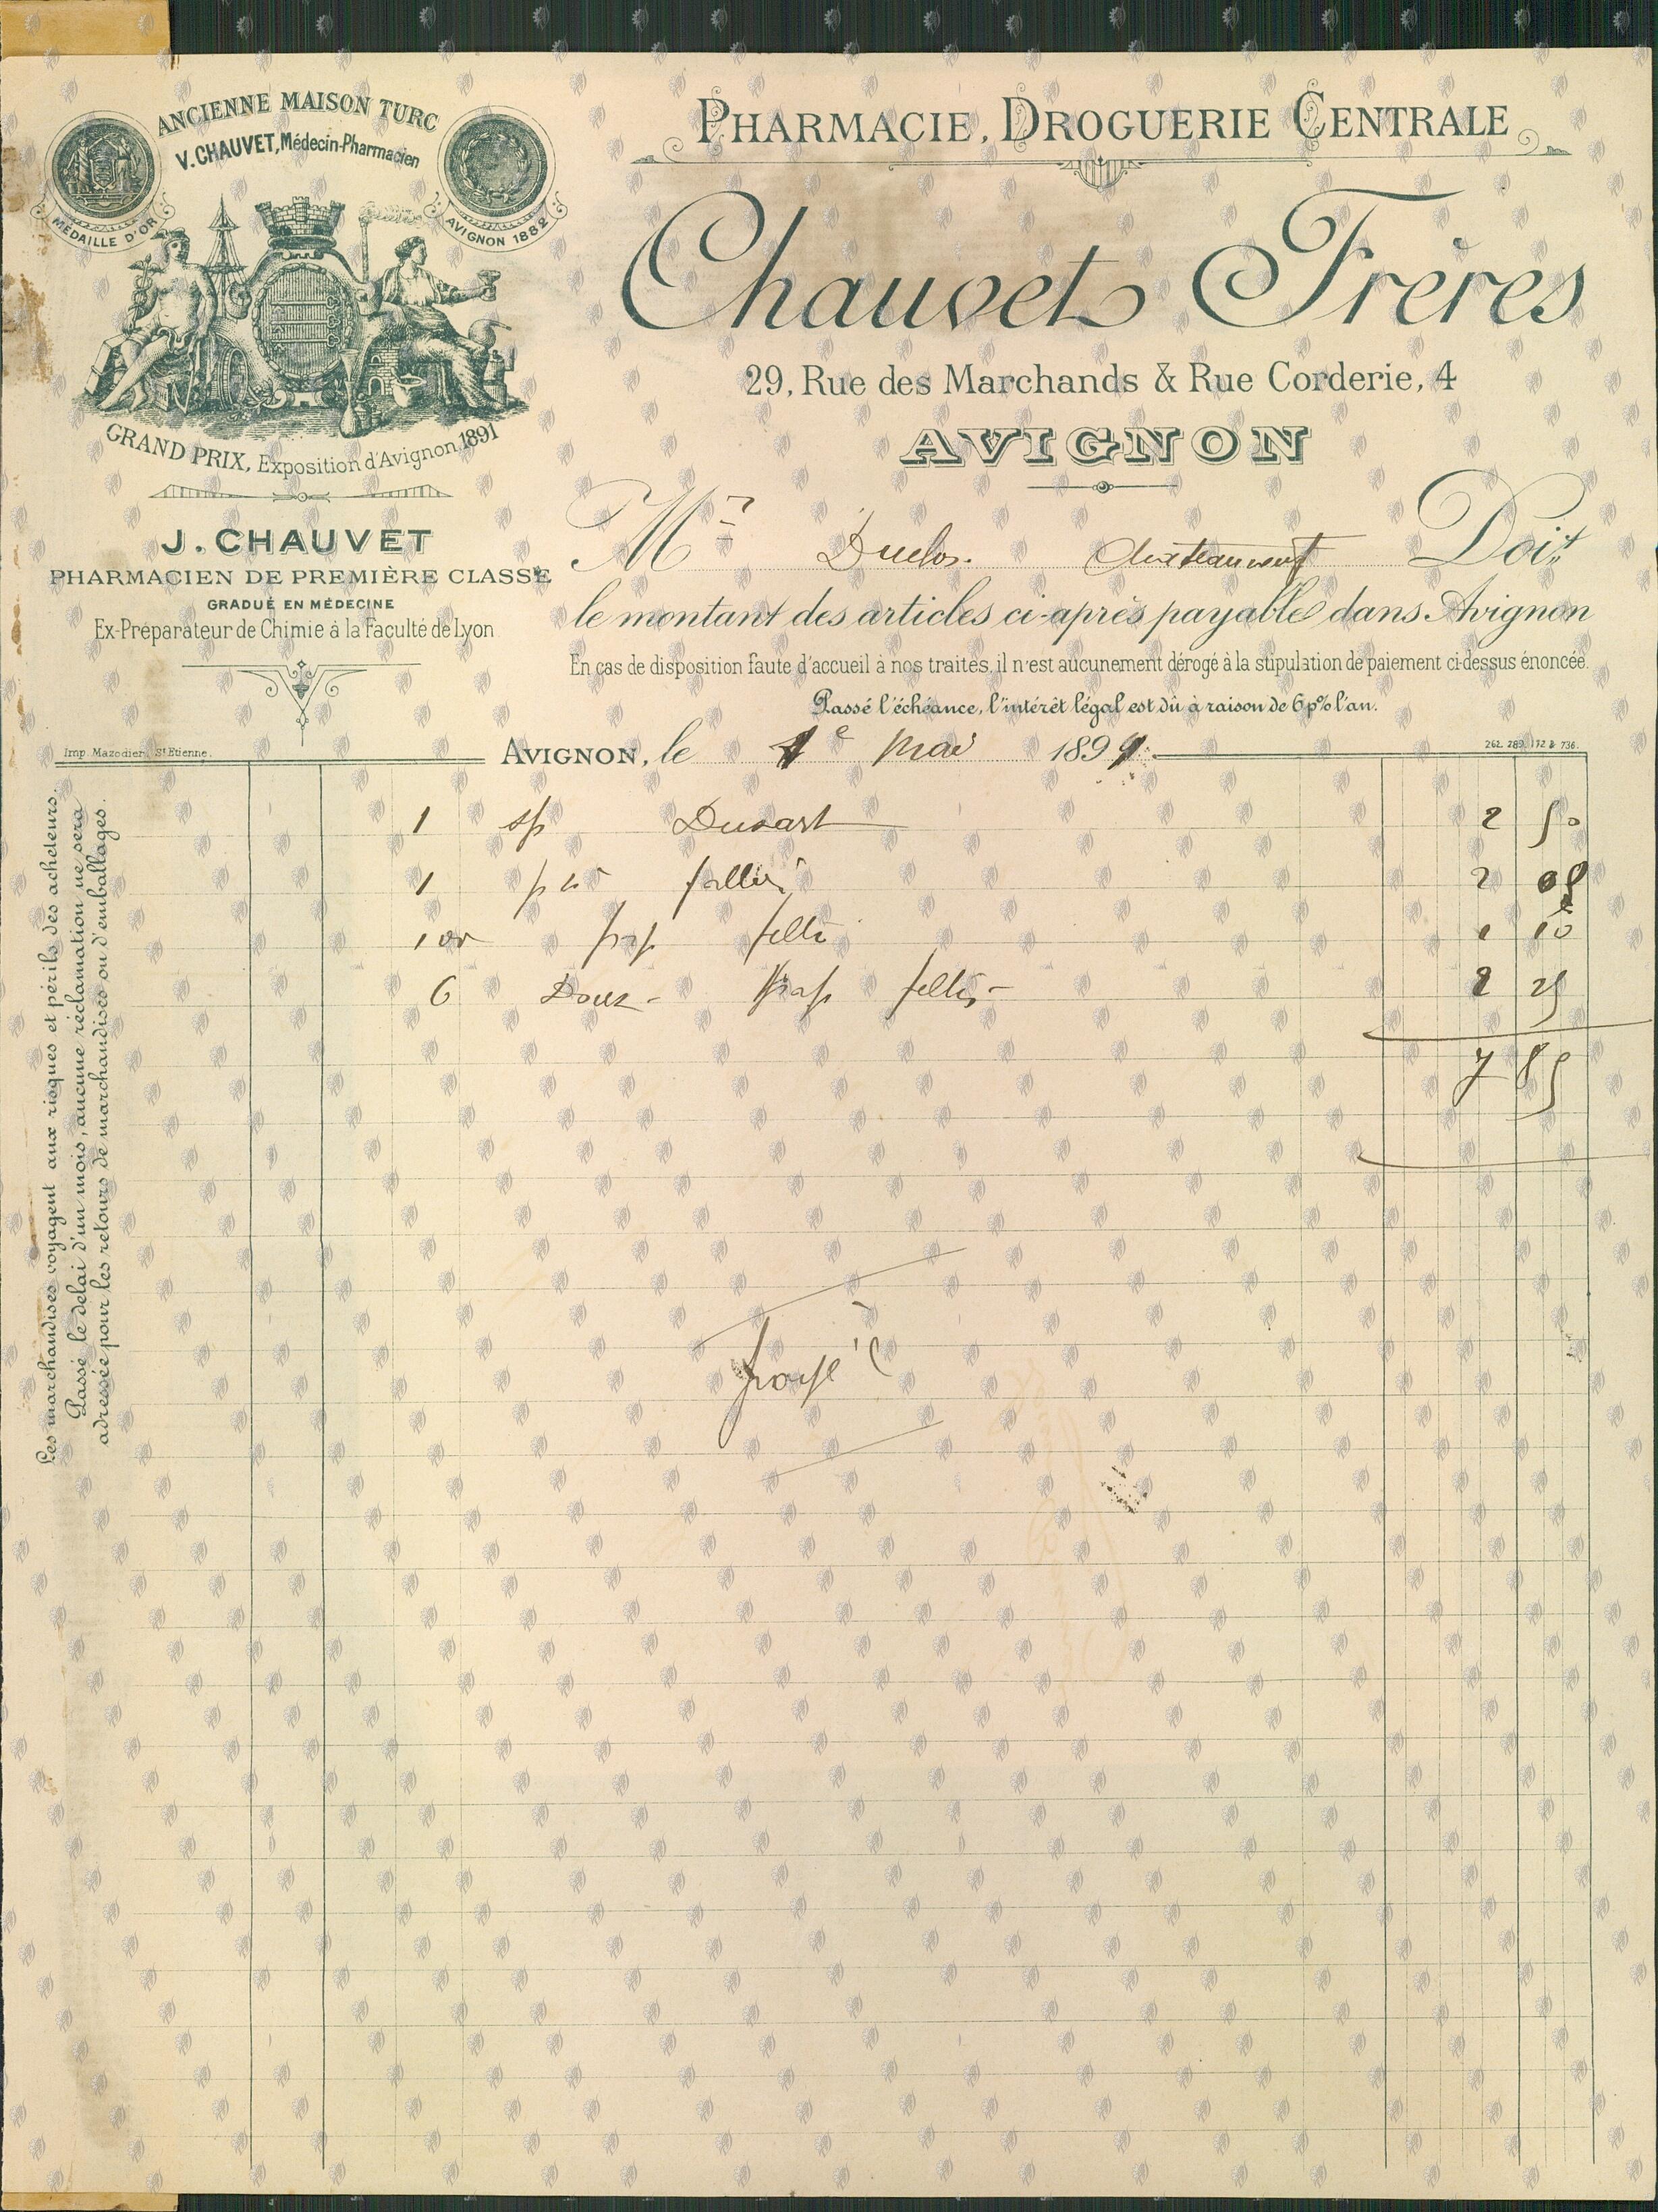 ANCIENNE MAISON TURC
V. CHAUVET, Médecin-Pharmacien
MÉDAILLE D'OR
AVIGNON 1882
GRAND PRIX, Exposition d'Avignon 1891
J. CHAUVET
PHARMACIEN DE PREMIÈRE CLASSE
GRADUÉ EN MÉDECINE
Ex-Préparateur de Chimie à la Faculté de Lyon
Imp. Mazodier, St Etienne.
PHARMACIE, DROGUERIE CENTRALE
Chauvet Frères
29, Rue des Marchands & Rue Corderie, 4
AVIGNON
Mr Duclos. Chateauneuf Doit
le montant des articles ci-après payable dans Avignon
En cas de disposition faute d'accueil à nos traites, il n'est aucunement dérogé à la stipulation de paiement ci-dessus énoncée.
Passé l'échéance, l'intérêt légal est dû à raison de 6 p% l'an.
AVIGNON, le 1e Mai 1899
1 sp Dusart 2 50
1 2 05
100 1
6 Douz - 2 25
7 85
Les marchandises voyagent aux risques et périls des acheteurs.
Passé le délai d'un mois, aucune réclamation ne sera
adressée pour les retours de marchandises ou d'emballages.